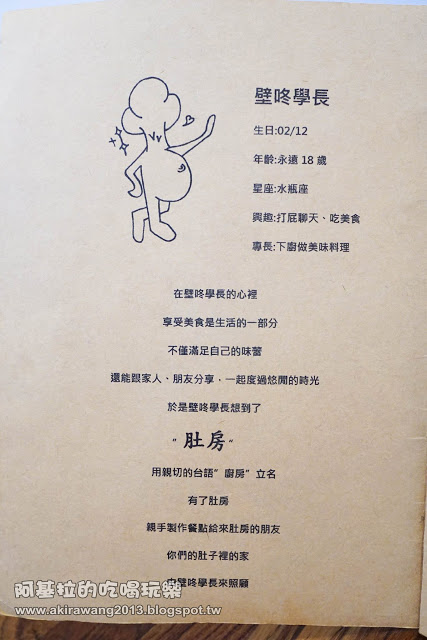 壁咚學長
生日:02/12
年齡:永遠 18 歲
星座:水瓶座
興趣:打屁聊天、吃美食
專長:下廚做美味料理
在壁咚學長的心裡
享受美食是生活的一部分
不僅滿足自己的味蕾
還能跟家人、朋友分享，一起度過悠閒的時光
於是壁咚學長想到了
"肚房"
用親切的台語"廚房"立名
有了肚房
親手製作餐點給來肚房的朋友
你們的肚子裡的家
由壁咚學長來照顧
阿基拉的吃喝玩樂
www.akirawang2013.blogspot.tw